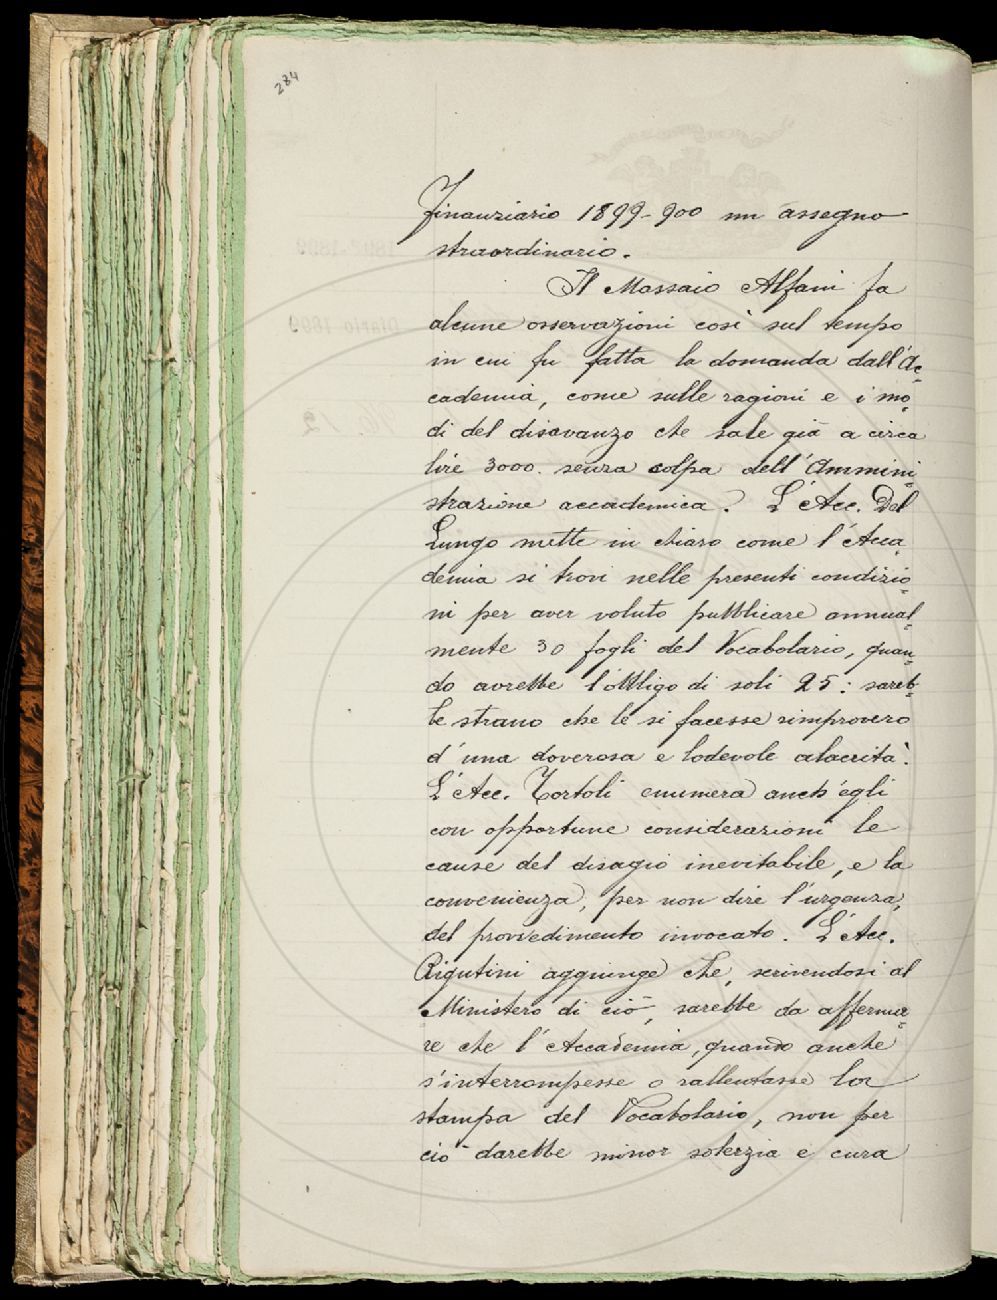 284
finanziario 1899-900 un assegno
straordinario.
Il Massaio Alfani fa
alcune osservazioni così sul tempo
in cui fu fatta la domanda dall'Ac-
cademia, come sulle ragioni e i mo-
di del disavanzo che sale già a circa
lire 3000. senza colpa dell'Ammini-
strazione accademica. L'Acc. Del
Lungo mette in chiaro come l'Acca-
demia si trovi nelle presenti condizio-
ni per aver voluto pubblicare annual-
mente 30 fogli del Vocabolario, quan-
do avrebbe l'obbligo di soli 25: sareb-
be strano che le si facesse rimprovero
d'una doverosa e lodevole alacrità.
L'Acc. Tortoli enumera anch'egli
con opportune considerazioni le
cause del disagio inevitabile, e la
convenienza, per non dire l'urgenza,
del provvedimento invocato. L'Acc.
Rigutini aggiunge che, scrivendosi al
Ministero di ciò, sarebbe da afferma-
re che l'Accademia, quando anche
s'interrompesse o rallentasse la
stampa del Vocabolario, non per
ciò darebbe minor solerzia e cura